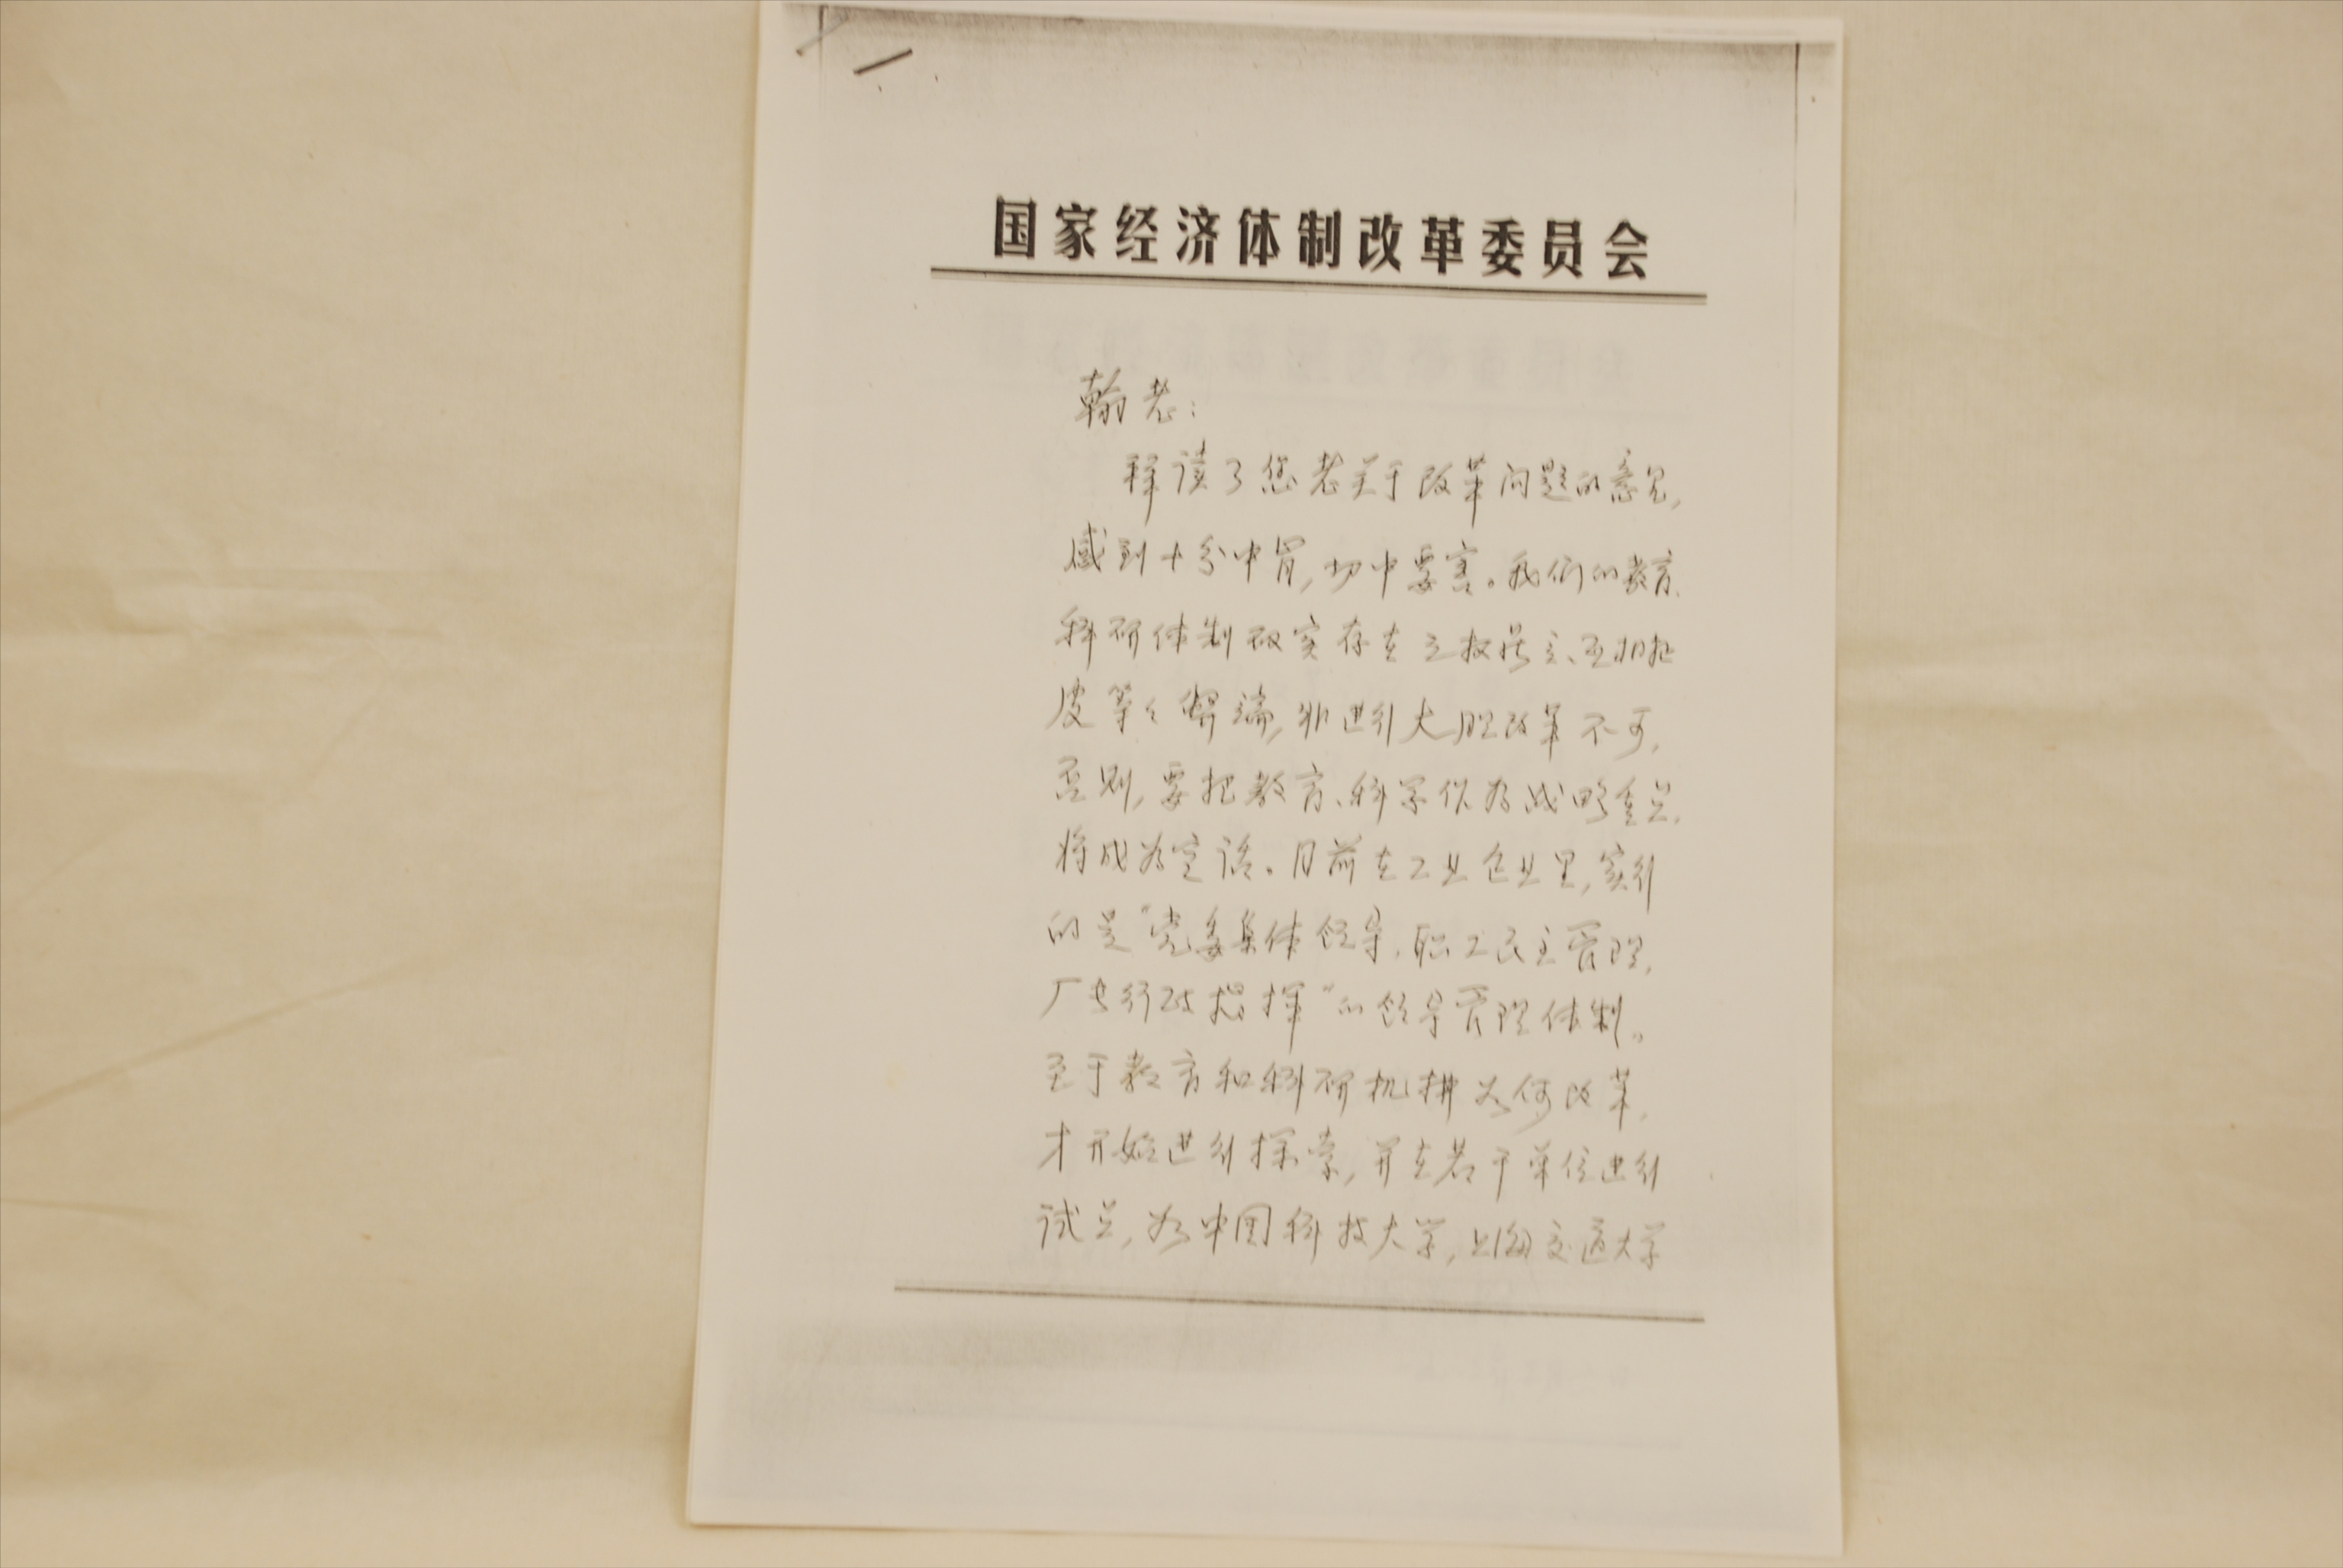 国家经济体制改革委员会
翰老：
拜读了您老关于改革问题的意见，
感到十分中肯，切中要害。我们的教育、
科研体制确实存在互相扯
皮等々弊端，非进行大胆改革不可，
否则，要把教育、科学作为战略重点，
将成为空话。目前在工业企业里，实行
的是“党委集体领导，职工民主管理，
厂长行政指挥”的领导管理体制。
至于教育和科研机构如何改革，
才开始进行探索，并在若干单位进行
试点，如中国科技大学，上海交通大学